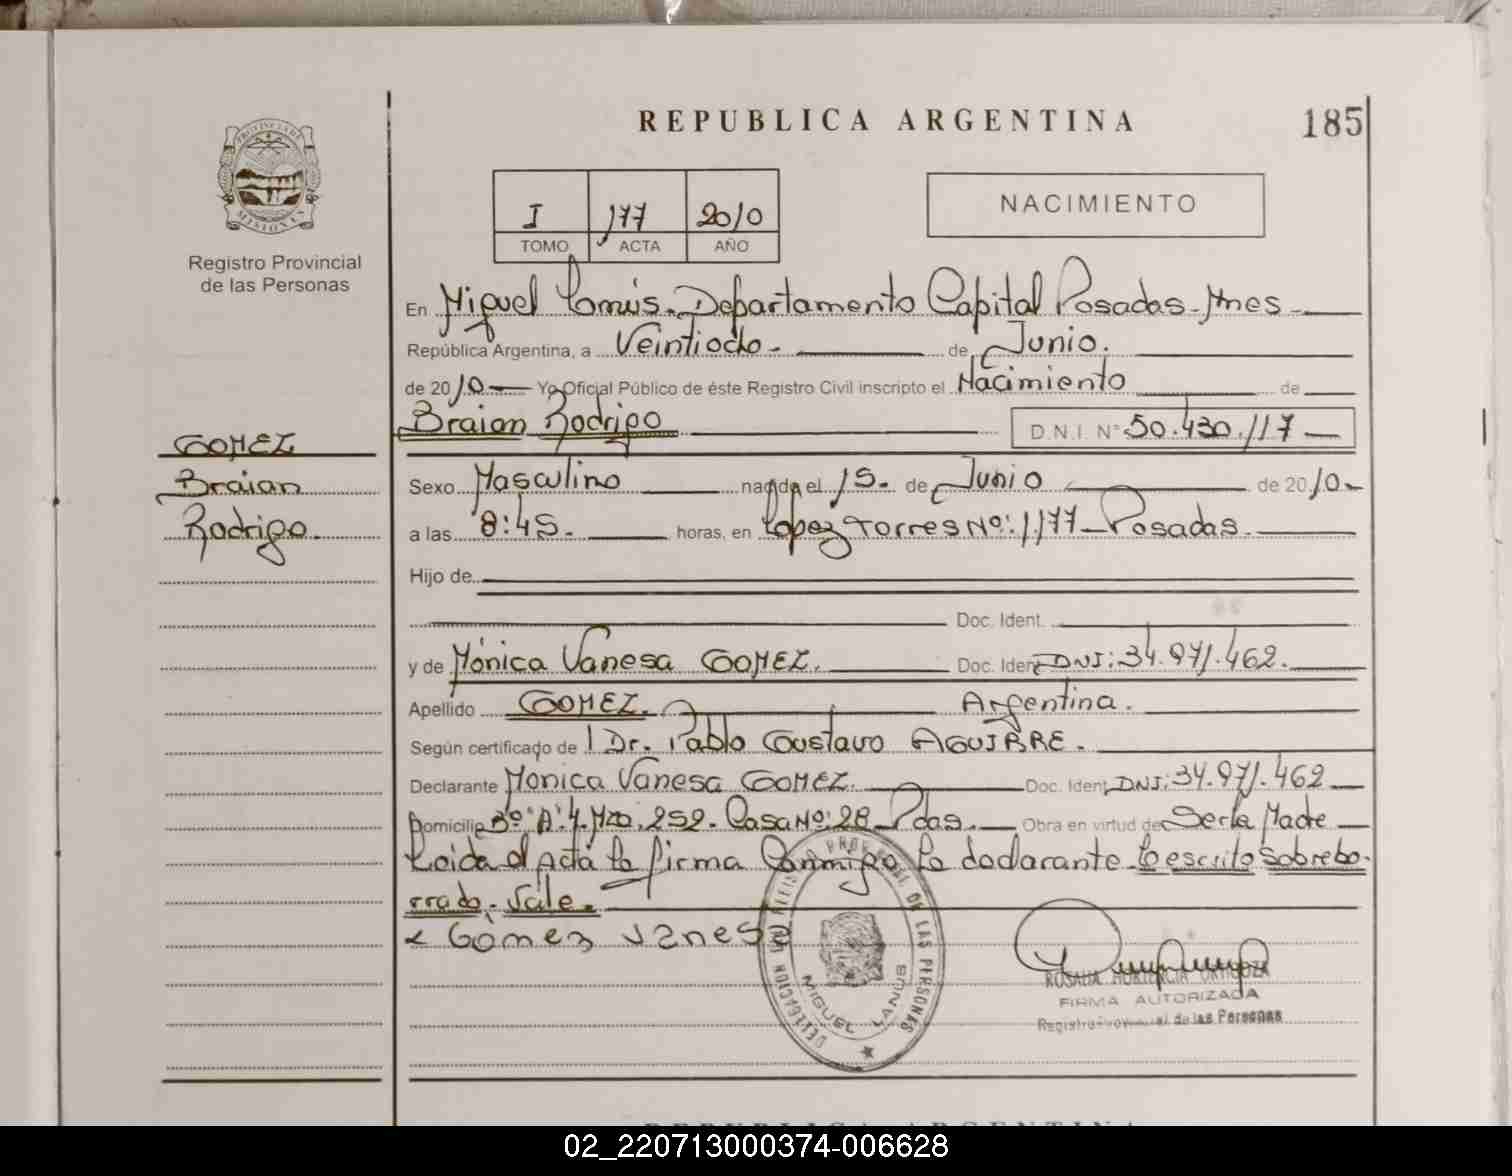 REPUBLICA ARGENTINA
185
PROVINCIA DE MISIONES
Registro Provincial
de las Personas
I 177 2010
TOMO ACTA AÑO
NACIMIENTO
En Miguel Lanús. Departamento Capital Posadas - Mnes
República Argentina, a Veintiocho - de Junio.
de 2010 Yo Oficial Público de éste Registro Civil inscripto el Nacimiento de
Braian Rodrigo D.N.I. Nº 50.430.117
GOMEZ
Braian
Rodrigo.
Sexo Masculino nacido el 15. de Junio de 2010
a las 8:45. horas, en Lopez Torres Nº: 1177 - Posadas.
Hijo de
Doc. Ident.
y de Mónica Vanesa GOMEZ. Doc. Ident DNI: 34.971.462.
Apellido GOMEZ. Argentina.
Según certificado de Dr. Pablo Gustavo AGUIRRE.
Declarante Monica Vanesa GOMEZ. Doc. Ident DNI: 34.971.462
Domicilio Bº "A" 4. Mza. 252. Casa Nº: 28 Pdas. Obra en virtud de Ser la Madre
Leida el Acta la firma Conmigo la declarante. Lo escrito sobrebo-
rrado. Vale.
Gómez Vanesa
DELEGACION REGISTRO PROV. DE LAS PERSONAS
MIGUEL LANUS
ROSALIA HORTENCIA ORTIGOZA
FIRMA AUTORIZADA
Registro Provincial de las Personas
REPUBLICA ARGENTINA
02_220713000374-006628